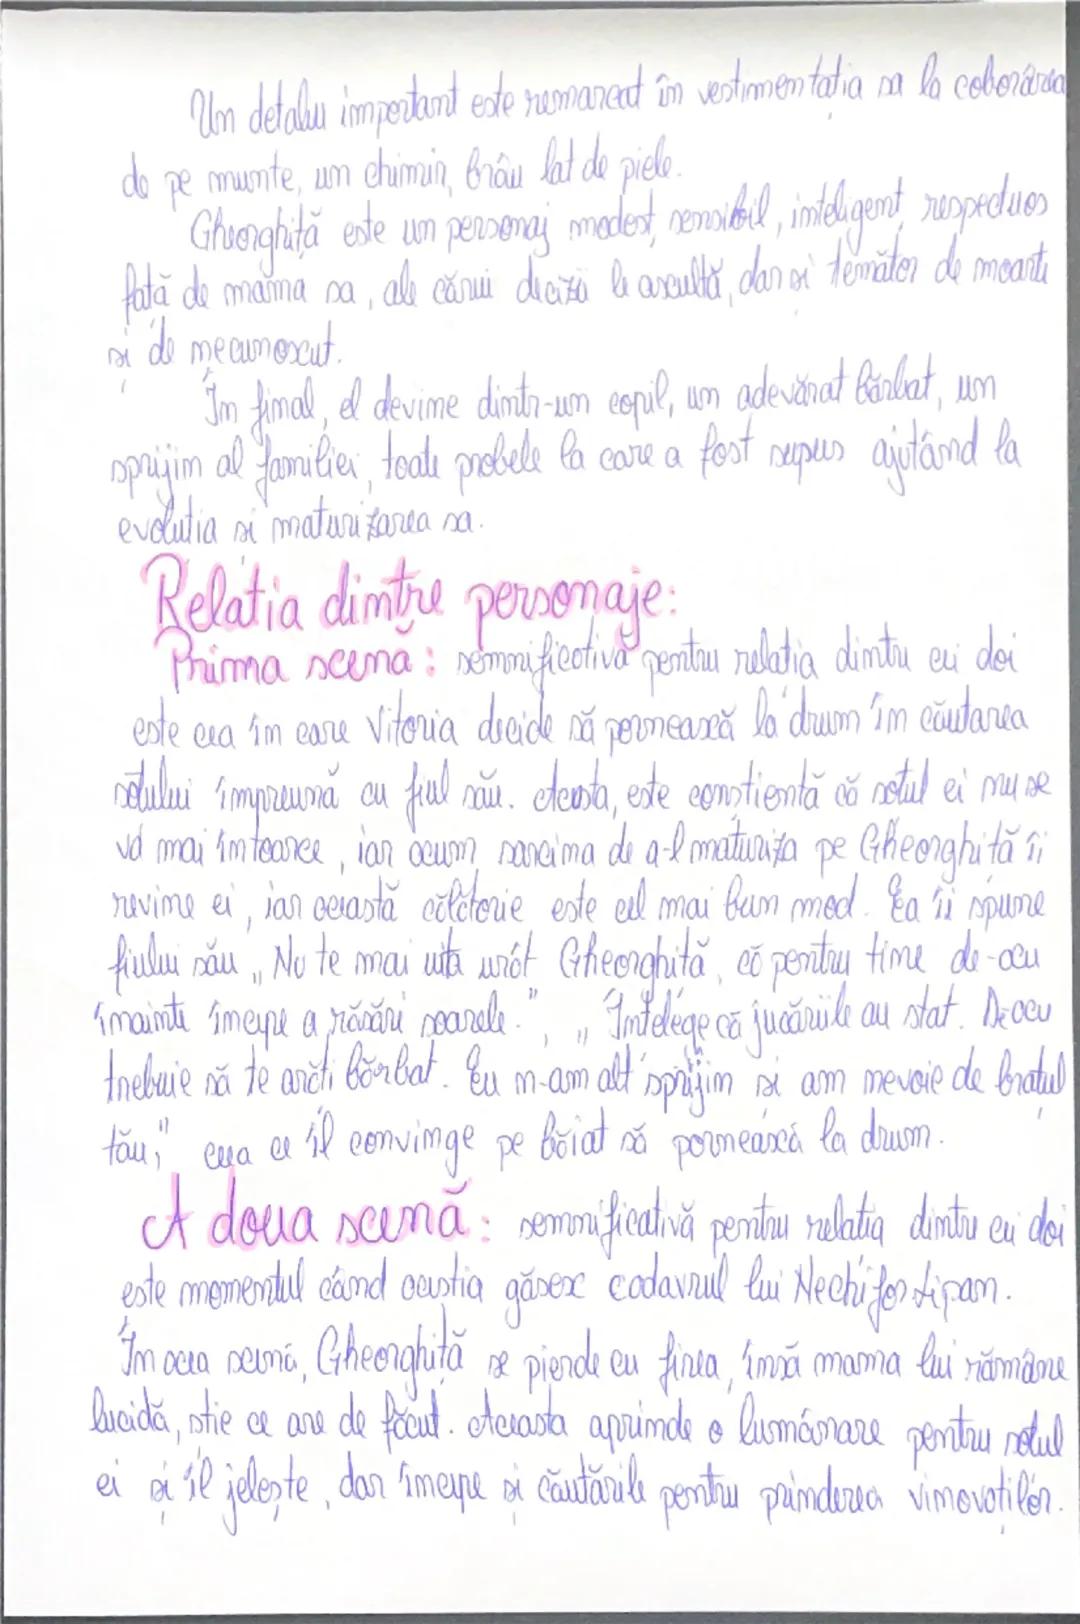 Un detaliu important este remarcat în vestimentația sa la coborârea
de pe munte, un chimir, brâu lat de piele.
Gheorghiță este un personaj modest, sensibil, inteligent, respectuos
față de mama sa, ale cărui decizii le ascultă, dar și temător de moarte
și de necunoscut.
În final, el devine dintr-un copil, un adevărat bărbat, un
sprijin al familiei, toate probele la care a fost supus ajutând la
evoluția și maturizarea sa.
Relația dintre personaje:
Prima scenă: semnificativă pentru relația dintre cei doi
este cea în care Vitoria decide să pornească la drum în căutarea
soțului împreună cu fiul său. Aceasta, este conștientă că soțul ei nu se
va mai întoarce, iar acum sarcina de a-l maturiza pe Gheorghiță îi
revine ei, iar această călătorie este cel mai bun mod. Ea îi spune
fiului său „Nu te mai uita urât Gheorghiță, că pentru tine de-acu
înainte începe a răsări soarele.", „Înțelege că jucăriile au stat. De acu
trebuie să te arăți bărbat. Eu n-am alt sprijin și am nevoie de brațul
tău;" ceea ce îl convinge pe băiat să pornească la drum.
A doua scenă: semnificativă pentru relația dintre cei doi
este momentul când aceștia găsesc cadavrul lui Nechifor Lipan.
În acea scenă, Gheorghiță se pierde cu firea, însă mama lui rămâne
lucidă, știe ce are de făcut. Aceasta aprinde o lumânare pentru soțul
ei și îl jelește, dar începe și căutările pentru prinderea vinovaților.